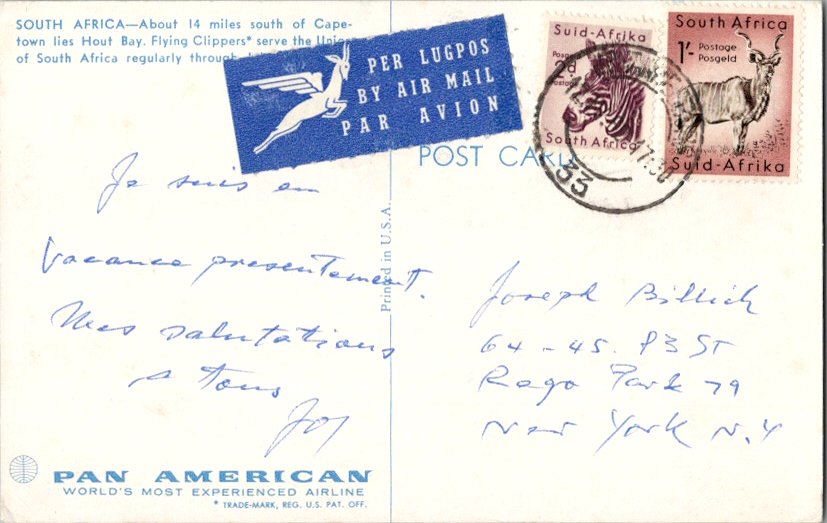 SOUTH AFRICA—About 14 miles south of Cape-
town lies Hout Bay. Flying Clippers* serve the Union
of South Africa regularly through
PER LUGPOS
BY AIR MAIL
PAR AVION
Suid-Afrika
2d
South Africa
South Africa
1/- Postage
Posgeld
Suid-Afrika
33
POST CARD
Printed in U.S.A.
Je suis en
vacance presentement.
Mes salutations
a tous
Joseph Billich
64-45. 83 ST
Rego Park 79
New York N.Y
PAN AMERICAN
WORLD'S MOST EXPERIENCED AIRLINE
* TRADE-MARK, REG. U.S. PAT. OFF.